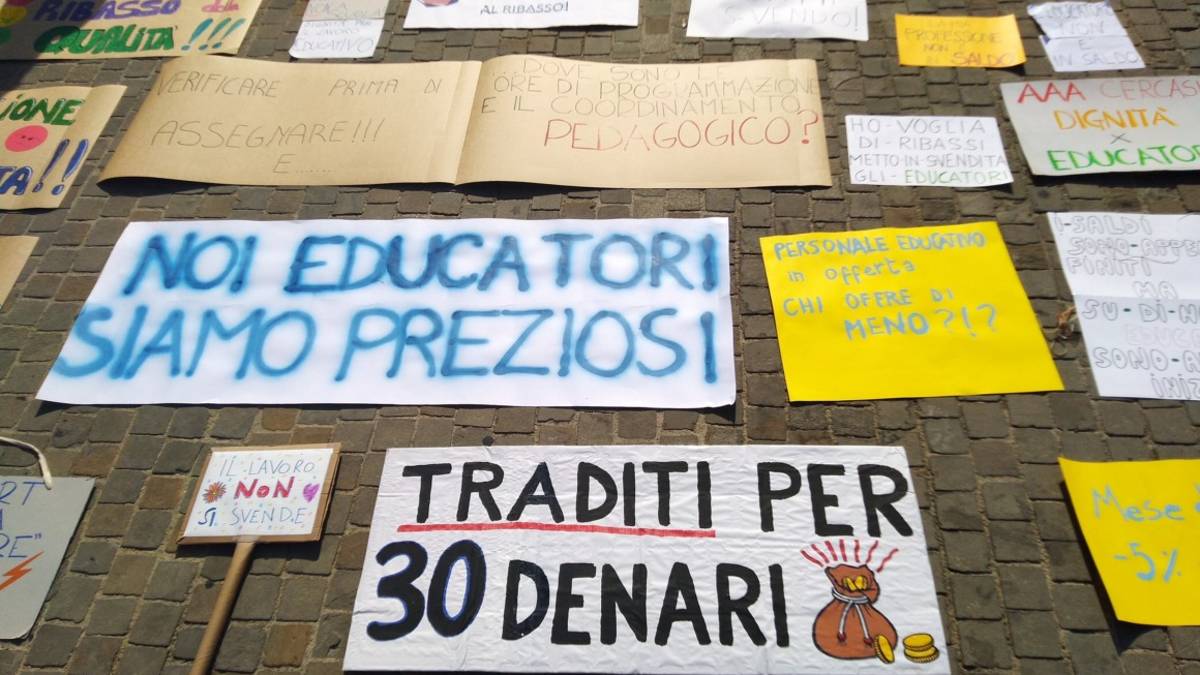 RIBASSO della
QUALITÀ!!!
EDUCATIVO
AL RIBASSO!
SVENDO!
PROFESSIONE
NON È
IN SALDO
NON
È
IN SALDO
IONE
TA!!
VERIFICARE PRIMA DI
ASSEGNARE!!!
E......
DOVE SONO LE
ORE DI PROGRAMMAZIONE
E IL COORDINAMENTO
PEDAGOGICO?
HO-VOGLIA
DI-RIBASSI
METTO-IN-SVENDITA
GLI-EDUCATORI
AAA CERCASI
DIGNITÀ
X
EDUCATOR
NOI EDUCATORI
SIAMO PREZIOSI
PERSONALE EDUCATIVO
in offerta
CHI OFFRE DI
MENO?!?
I-SALDI
FINITI
MA
SU-DI-N
SONO-A
INIZ
RT
A
RE"
IL LAVORO
NON
SI SVENDE
TRADITI PER
30 DENARI
Mese
-5%